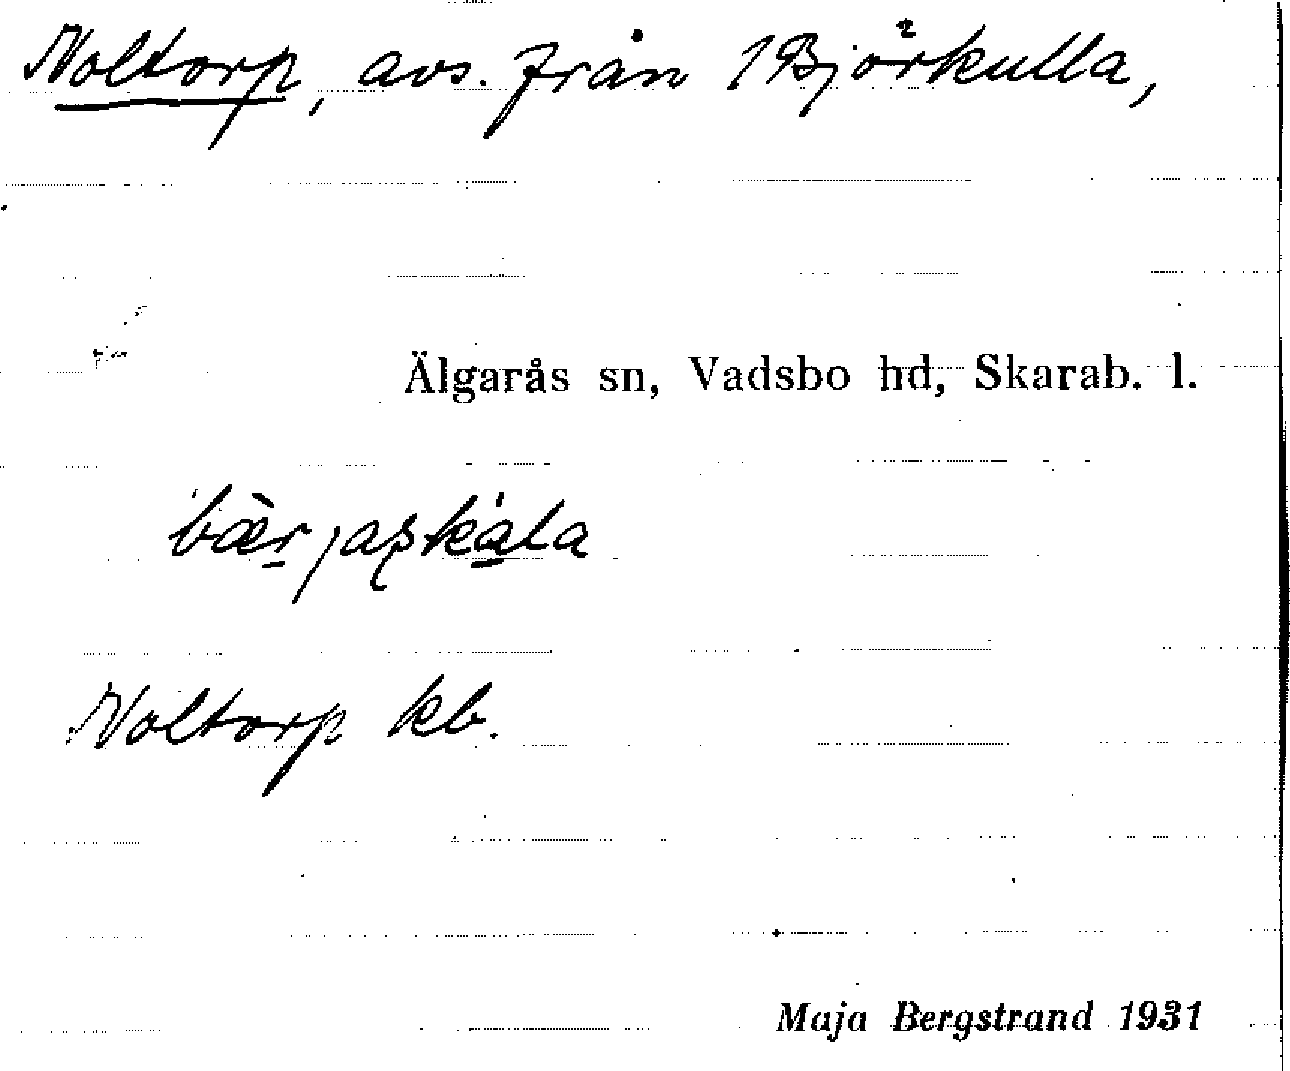 Noltorp, avs. från 1 Björkulla,
Älgarås sn, Vadsbo hd, Skarab. l.
Noltorp kb.
Maja Bergstrand 1931